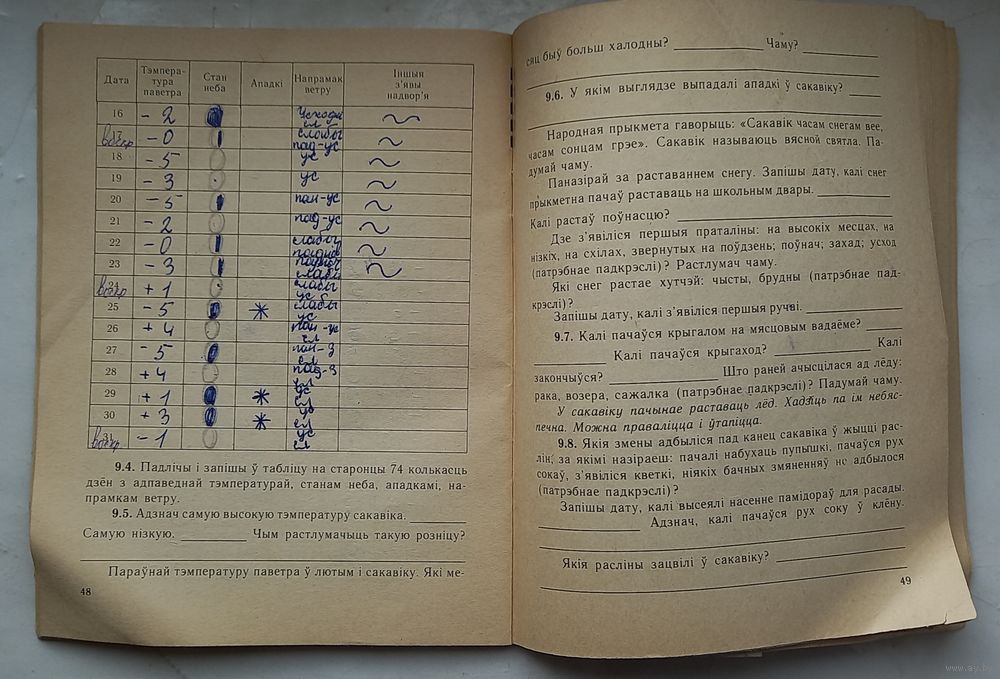 Дата Тэмпера- тура паветра Стан неба Ападкі Напрамак ветру Іншыя з'явы надвор'я
16 - 2 Усходні сл
17 воскр - 0 слабы пад-ус
18 - 5 ус
19 - 3 ус
20 - 5 пан-ус
21 - 2 пад-ус
22 - 0 слабы
23 - 3 слабы
воскр + 1 слабы ус
25 - 5 слабы ус
26 + 4 пан-ус сл
27 - 5 пан-З сл
28 + 4 пад-З сл
29 + 1 ус сл
30 + 3 ус сл
воскр - 1 ус сл
9.4. Падлічы і запішы ў табліцу на старонцы 74 колькасць
дзён з адпаведнай тэмпературай, станам неба, ападкамі, на-
прамкам ветру.
9.5. Адзнач самую высокую тэмпературу сакавіка.
Самую нізкую. Чым растлумачыць такую розніцу?
Параўнай тэмпературу паветра ў лютым і сакавіку. Які ме-
48
сяц быў больш халодны? Чаму?
9.6. У якім выглядзе выпадалі ападкі ў сакавіку?
Народная прыкмета гаворыць: «Сакавік часам снегам вее,
часам сонцам грэе». Сакавік называюць вясной святла. Па-
думай чаму.
Паназірай за раставаннем снегу. Запішы дату, калі снег
прыкметна пачаў раставаць на школьным двары.
Калі растаў поўнасцю?
Дзе з'явіліся першыя праталіны: на высокіх месцах, на
нізкіх, на схілах, звернутых на поўдзень; поўнач; захад; усход
(патрэбнае падкрэслі)? Растлумач чаму.
Які снег растае хутчэй: чысты, брудны (патрэбнае пад-
крэслі)?
Запішы дату, калі з'явіліся першыя ручаі.
9.7. Калі пачаўся крыгалом на мясцовым вадаёме?
Калі пачаўся крыгаход? Калі
закончыўся? Што раней ачысцілася ад лёду:
рака, возера, сажалка (патрэбнае падкрэслі)? Падумай чаму.
У сакавіку пачынае раставаць лёд. Хадзіць па ім небяс-
печна. Можна праваліцца і ўтапіцца.
9.8. Якія змены адбыліся пад канец сакавіка ў жыцці рас-
лін, за якімі назіраеш: пачалі набухаць пупышкі, пачаўся рух
сокаў, з'явіліся кветкі, ніякіх бачных змяненняў не адбылося
(патрэбнае падкрэслі)?
Запішы дату, калі высеялі насенне памідораў для расады.
Адзнач, калі пачаўся рух соку ў клёну.
Якія расліны зацвілі ў сакавіку?
49